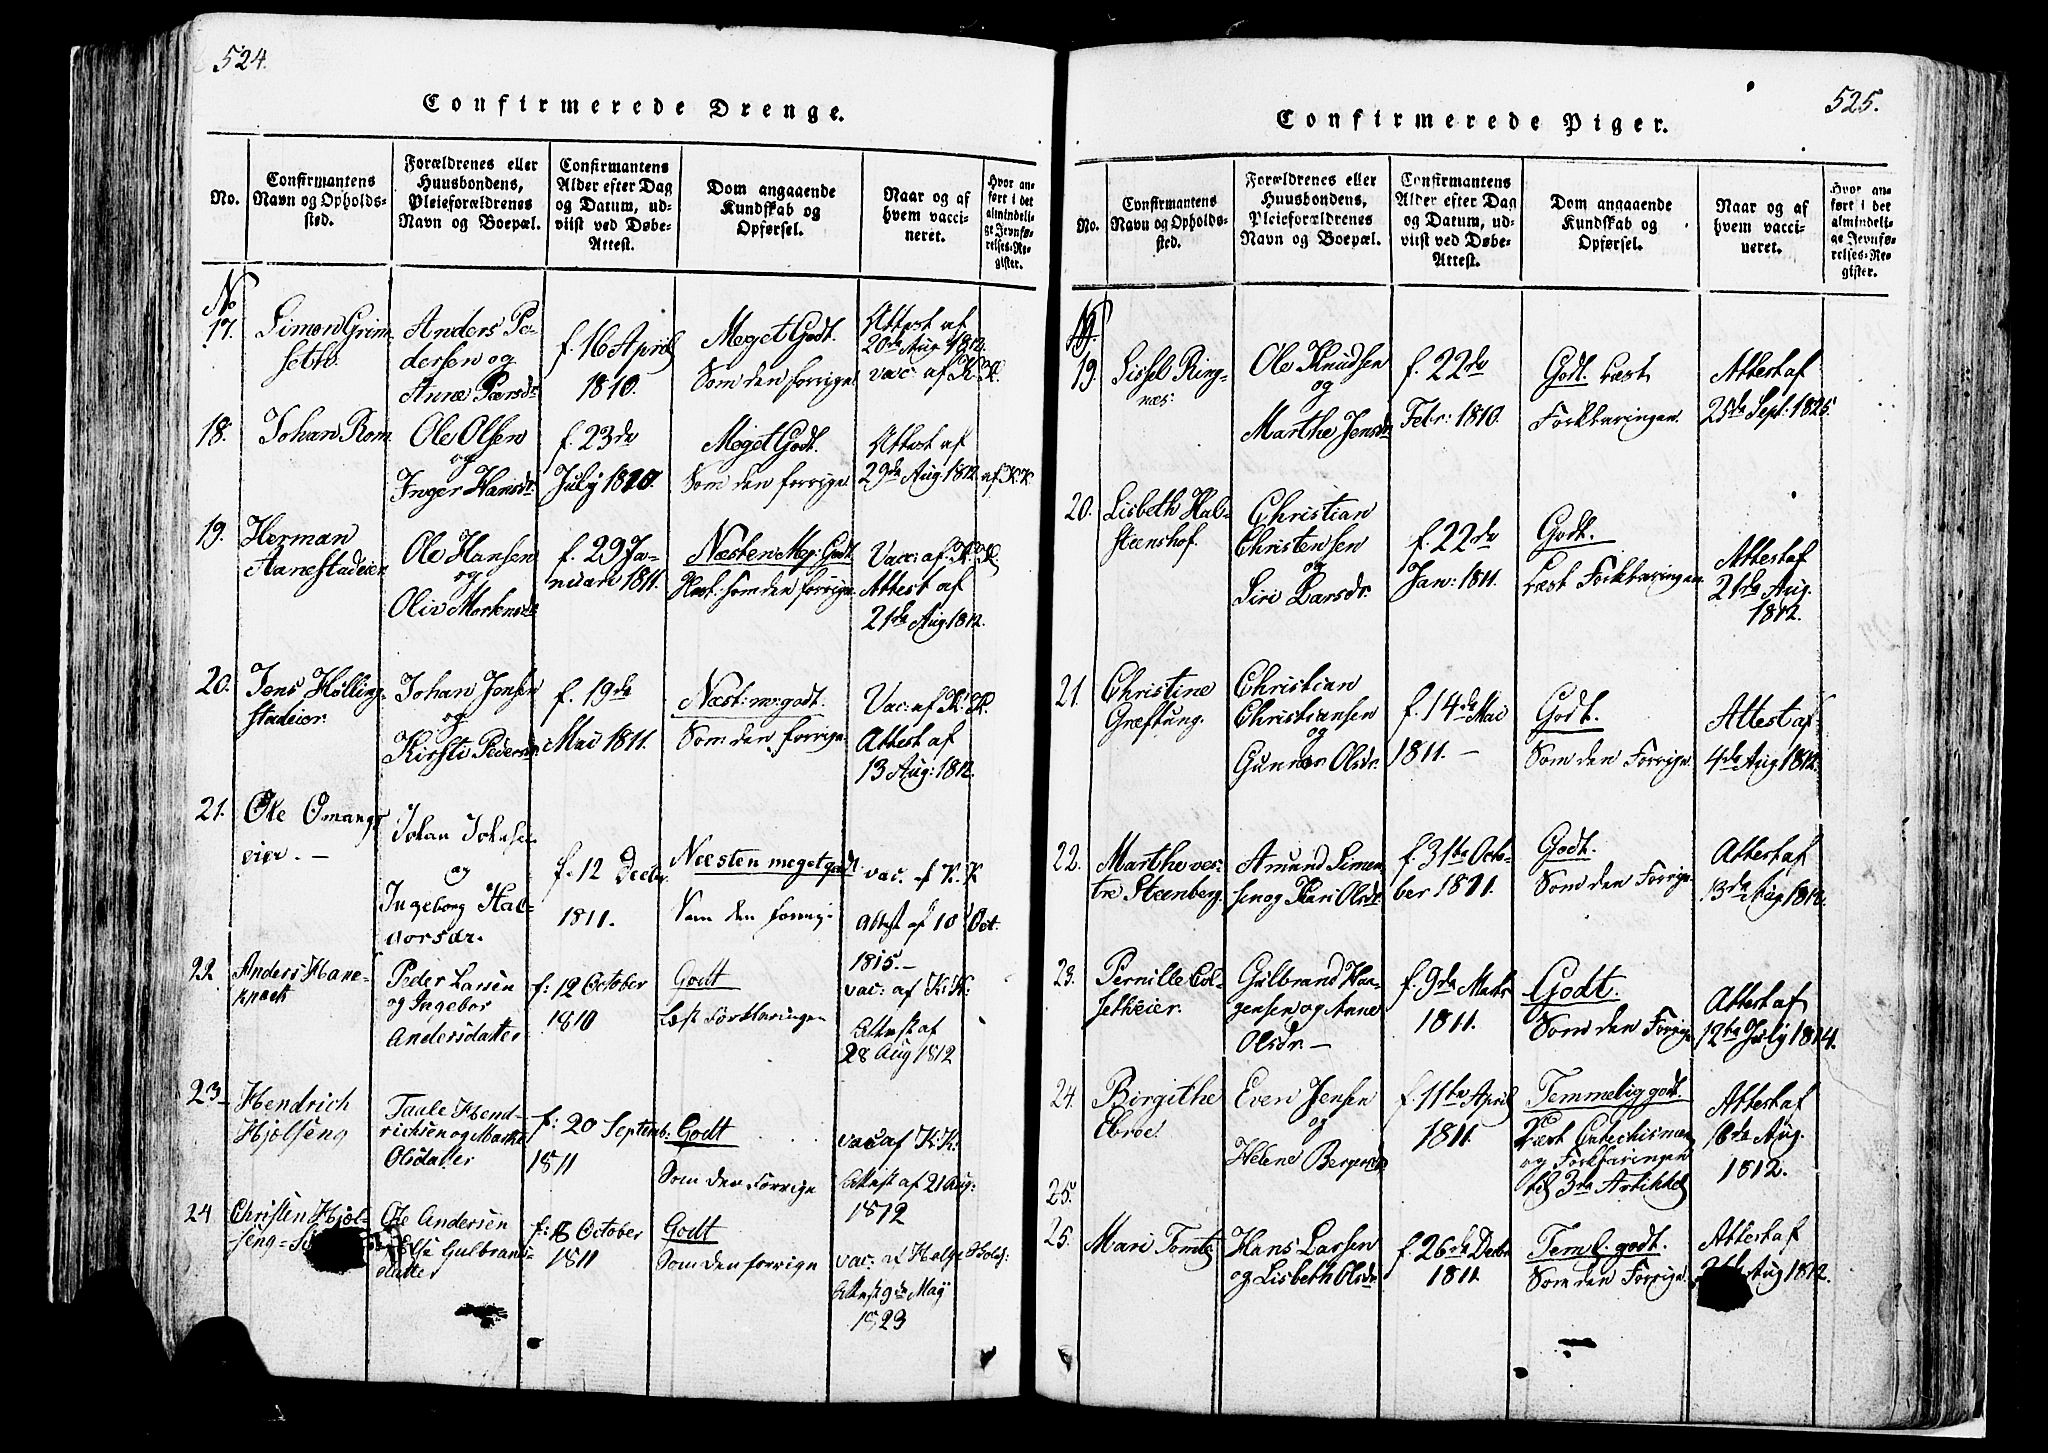 524.
Confirmerede Drenge.
No.
Confirmantens
Navn og Opholds-
sted.
Forældrenes eller
Huusbondens,
Pleieforældrenes
Navn og Boepæl.
Confirmantens
Alder efter Dag
og Datum, ud-
viist ved Døbe-
Attest.
Dom angaaende
Kundskab og
Opførsel.
Naar og af
hvem vacci-
neret.
Hvor an-
ført i det
almindeli-
ge Jevnfø-
relses-Re-
gister.
No
17.
Simon Grim-
seth.
Anders Pe-
dersen og
Anne Pærsdr
f. 16 April
1810.
Meget Godt.
Som den forrige
Attest af
20de Aug 1812.
vac af K. K.
18.
Johan Rom
Ole Olsen
og
Inger Hansdr.
f. 23de
July 1810.
Meget Godt.
Som den forrige
Attest af
29de Aug 1812. af K. K.
19.
Herman
Aanestadeier
Ole Hansen
og
Oliv Mortensdr
f. 29 Ja-
nuari 1811.
Næsten Meg: Godt
Næst: som den forrige
Vac: af K. K.
Attest af
21de Aug 1812.
20.
Jens Hølling-
stadeier.
Johan Jensen
og
Kirsti Pedersdr
f. 19de
Mai 1811.
Næst: m: godt.
Som den forrige
Vac: af K. K.
Attest af
13 Aug: 1812.
21.
Ole Omangs
eier. —
Johan Johnsen
og
Ingeborg Hal-
vorsdr.
f. 12 Decbr
1811.
Næsten meget godt
Som den forrige
vac. af K. K
Attest af 10 Oct.
1815.—
22
Anders Hane-
knæe
Peder Larsen
og Ingebor
Andersdatter
f: 12 October
1810
Godt
Læst Forklaringen
vac: af K: K:
Attest af
28 Aug 1812
23
Hendrich
Hjølseng
Taale Hend-
richsen og Marthe
Olsdatter
f: 20 Septemb:
1811
Godt
Som den Forrige
vac af K: K:
Attest af 21 Aug:
1812
24
Christen Hjøl-
seng-
Ole Andersen
Gulbrands-
datter
October
1811
Godt
Som den forrige
vac: af Helge
Attest 9de May
1823
525.
Confirmerede Piger.
No.
Confirmantens
Navn og Opholds-
sted.
Forældrenes eller
Huusbondens,
Pleieforældrenes
Navn og Boepæl.
Confirmantens
Alder efter Dag
og Datum, ud-
viist ved Døbe-
Attest.
Dom angaaende
Kundskab og
Opførsel.
Naar og af
hvem vacci-
neret.
Hvor an-
ført i det
almindeli-
ge Jevnfø-
relses-Re-
gister.
19.
Sissel Ring-
næs:
Ole Knudsen
og
Marthe Jensdr
f. 22de
Febr: 1810.
Godt. Læst
Forklaringen.
Attest af
25de Sept: 1825.
20.
Lisbeth Hal-
steenshof.
Christian
Christensen
og
Siri Larsdr.
f. 22de
Jan: 1811.
Godt.
Læst Forklaringen
Attest af
21de Aug.
1812.
21.
Christine
Græftung.
Christian
Christiansen
og
Gunner Olsdr.
f. 14de Mai
1811. —
Godt.
Som den Forrige.
Attest af
4de Aug 1812.
22.
Marthe ves-
tre Steenberg.
Amund Simen-
sen og Kari Olsdr
f. 31te Octo-
ber 1811.
Godt.
Som den Forrige.
Attest af
13de Aug 1812.
23.
Pernille Col-
setheier.
Gulbrand Haa-
gensen og Anne
Olsdr. —
f. 9de Marts
1811.
Godt.
Som den Forrige
Attest af
12te July 1814.
24.
Birgithe
Ebroe.
Even Jensen
og
Helene Bergersdr
f. 11te April
1811.
Temmelig godt.
Læst Catechismen
og Forklaringen
til 3de Artikkel
Attest af
18de Aug.
1812.
25.
25.
Mari Tomte
Hans Larsen
og Lisbeth Olsdr
f. 26de Decbr
1811.
Teml. godt.
Som den Forrige.
Attest af
Aug 1812.